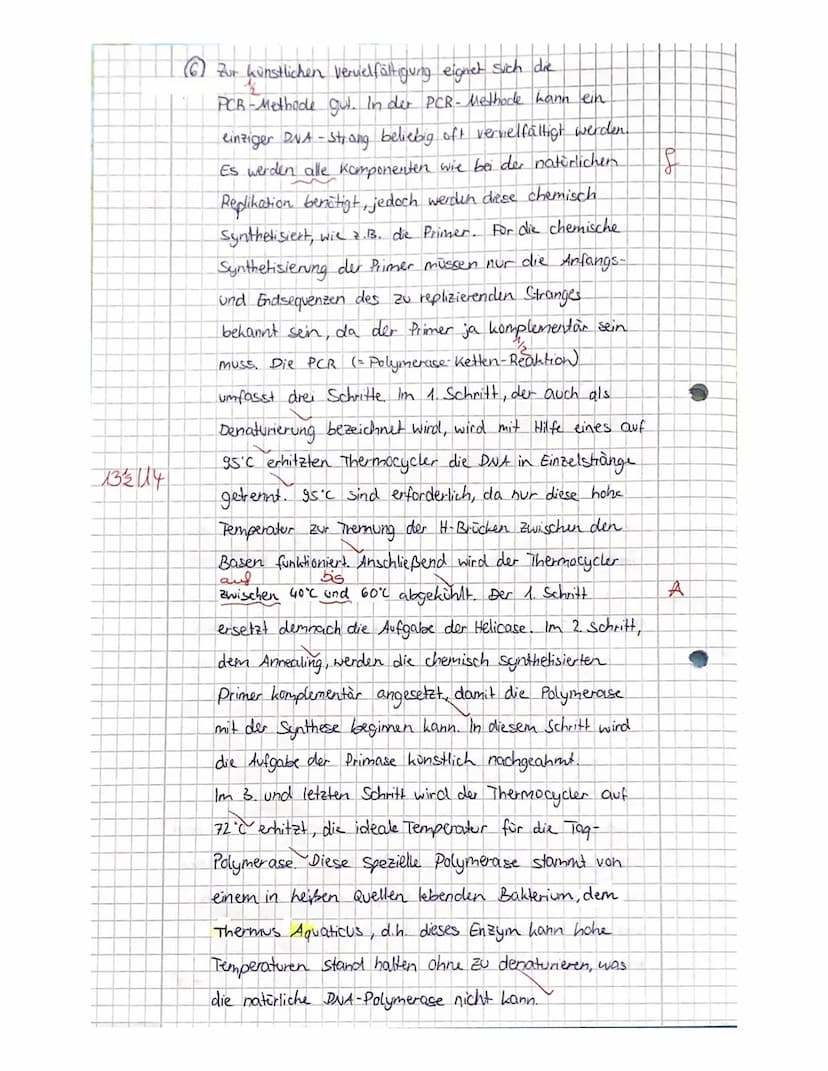 (6) Zur künstlichen Vervielfältigung eignet sich die
1/2
PCR-Methode gut. In der PCR-Methode kann ein
einziger DNA-Strang beliebig oft vervielfältigt werden.
Es werden alle Komponenten wie bei der natürlichen
f
Replikation benötigt, jedoch werden diese chemisch
synthetisiert, wie z.B. die Primer. Für die chemische
Synthetisierung der Primer müssen nur die Anfangs-
und Endsequenzen des zu replizierenden Stranges
bekannt sein, da der Primer ja komplementär sein
1/2
muss. Die PCR (= Polymerase-Ketten-Reaktion)
umfasst drei Schritte. Im 1. Schritt, der auch als
Denaturierung bezeichnet wird, wird mit Hilfe eines auf
95°C erhitzten Thermocycler die DNA in Einzelstränge
13½/14
getrennt. 95°C sind erforderlich, da nur diese hohe
Temperatur zur Trennung der H-Brücken zwischen den
Basen funktioniert. Anschließend wird der Thermocycler
auf bis
zwischen 40°C und 60°C abgekühlt. Der 1. Schritt
A
ersetzt demnach die Aufgabe der Helicase. Im 2. Schritt,
dem Annealing, werden die chemisch synthetisierten
Primer komplementär angesetzt, damit die Polymerase
mit der Synthese beginnen kann. In diesem Schritt wird
die Aufgabe der Primase künstlich nachgeahmt.
Im 3. und letzten Schritt wird der Thermocycler auf
72°C erhitzt, die ideale Temperatur für die Taq-
Polymerase. Diese spezielle Polymerase stammt von
einem in heißen Quellen lebenden Bakterium, dem
Thermus Aquaticus, d.h. dieses Enzym kann hohe
Temperaturen stand halten ohne zu denaturieren, was
die natürliche DNA-Polymerase nicht kann.